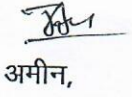 अमीन,